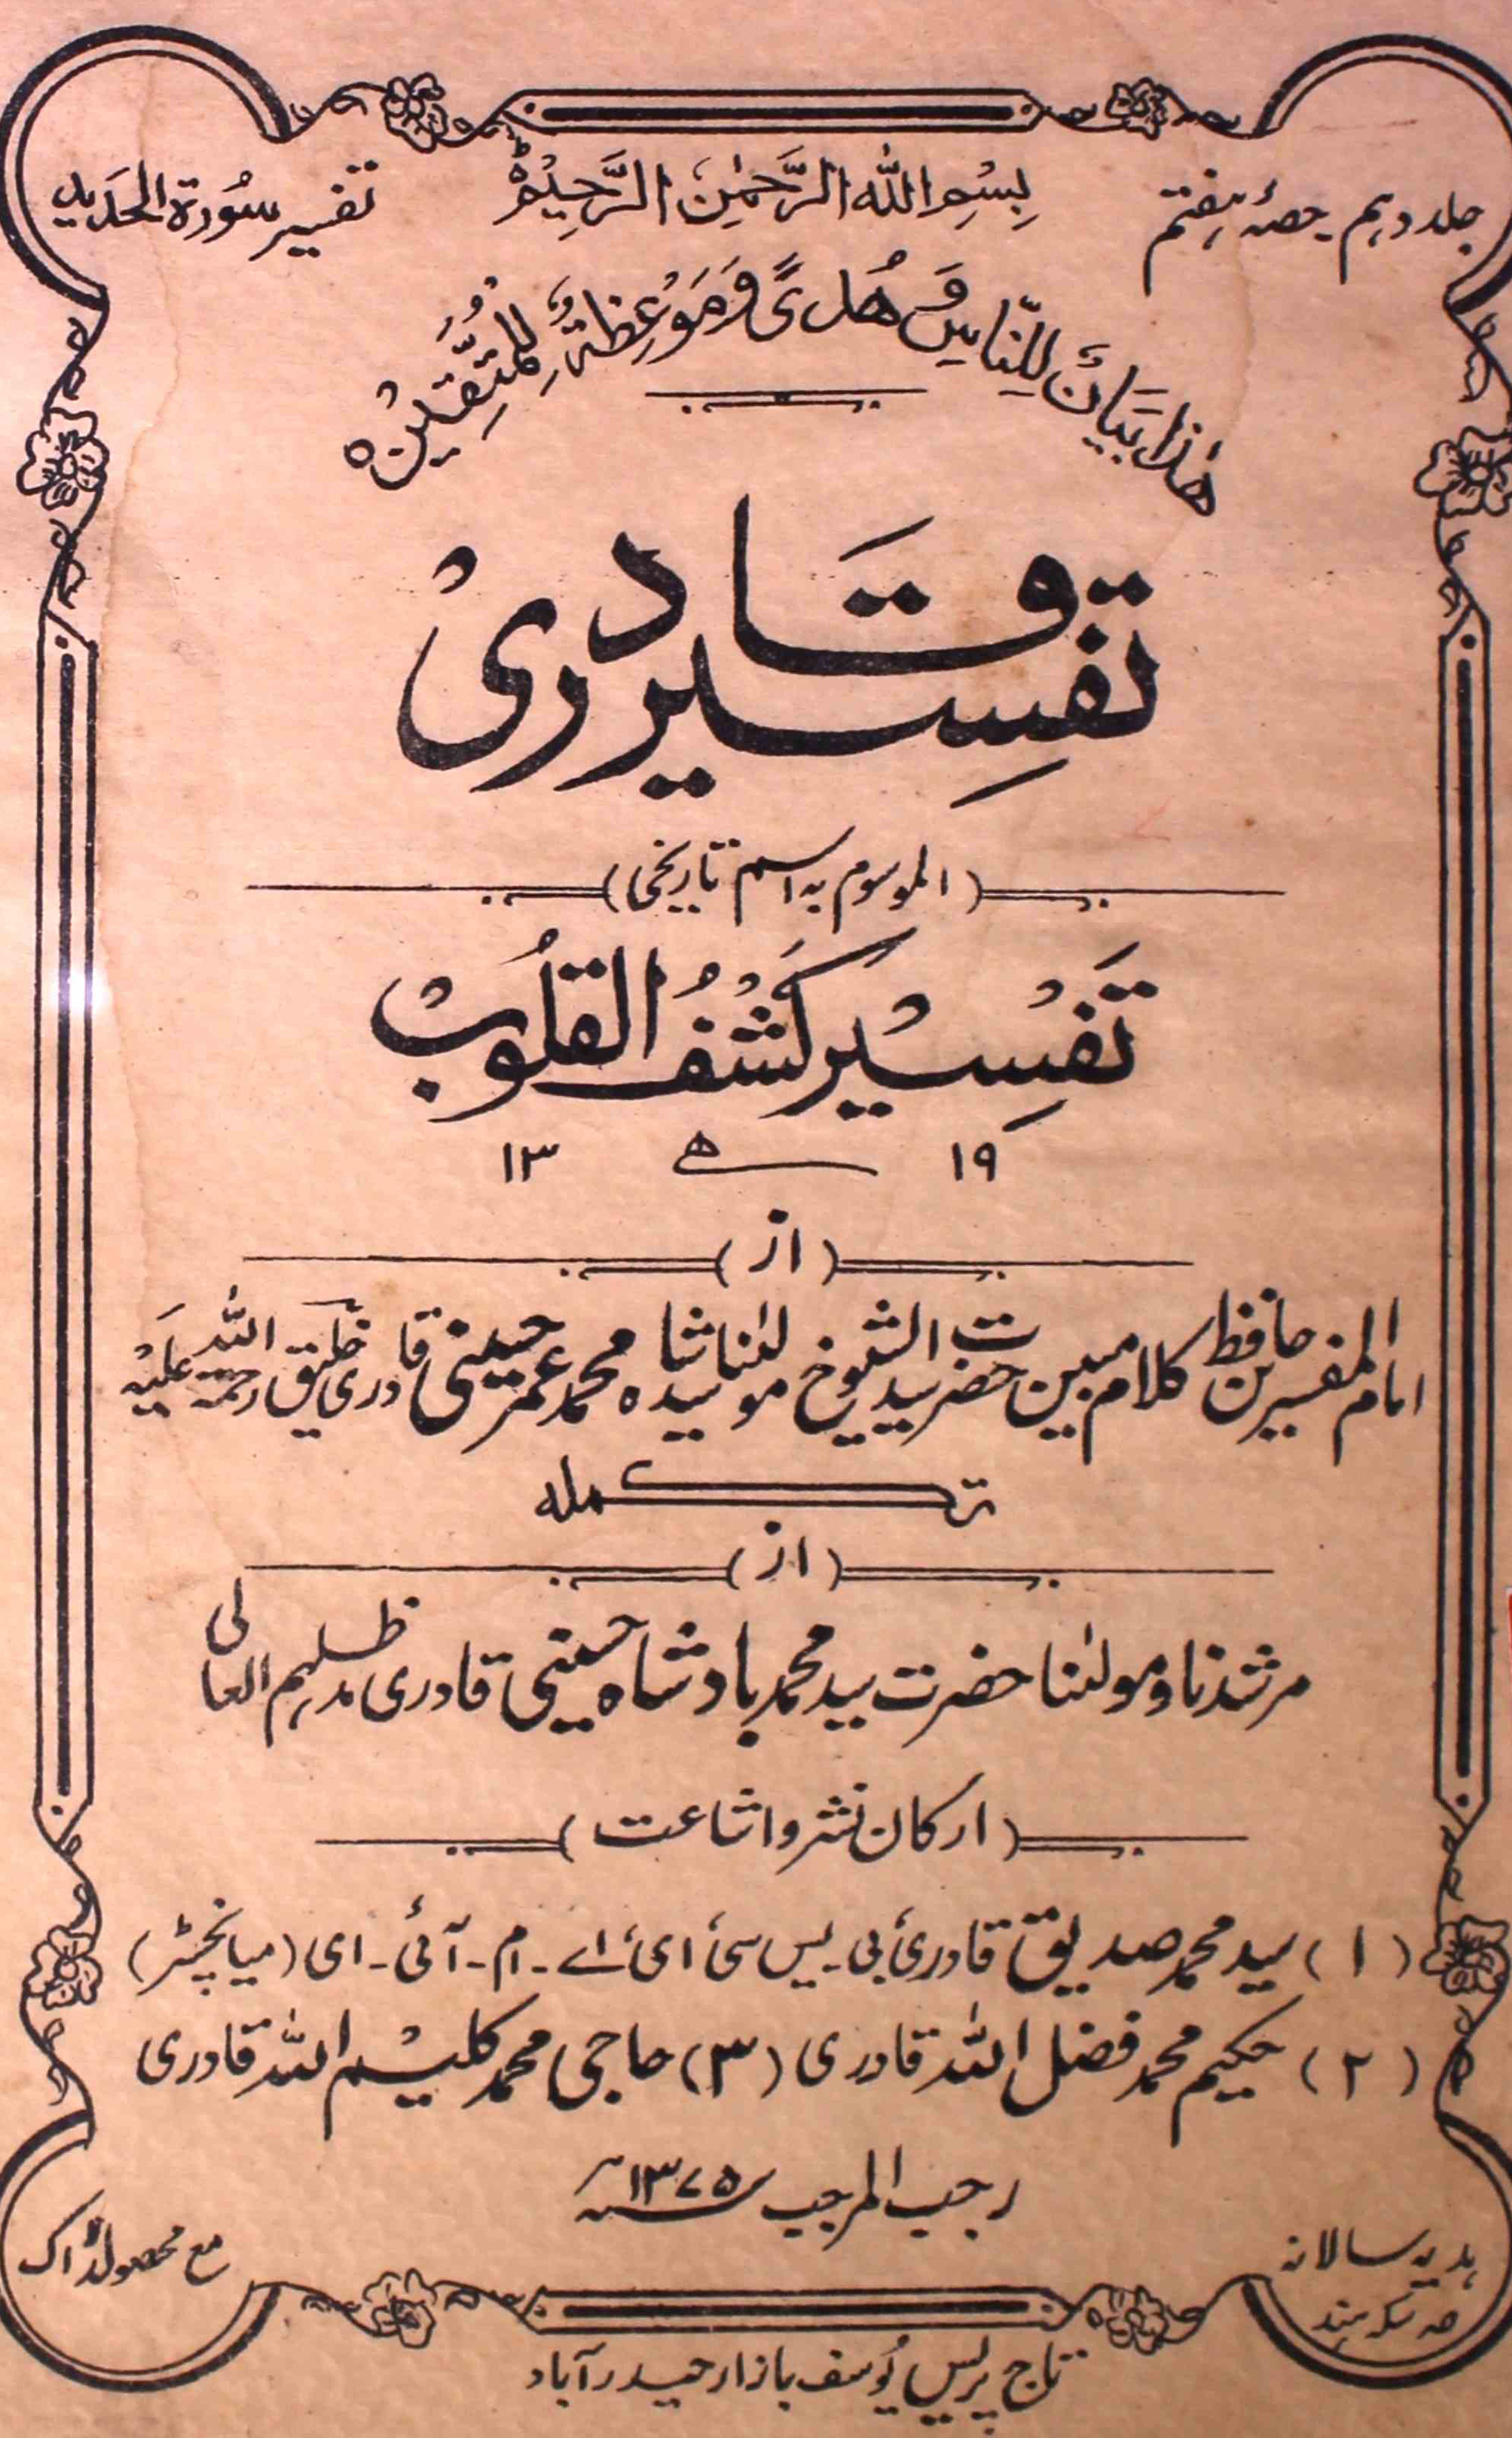 جلد دہم حصۂ ہفتم
بِسْمِ اللہِ الرَّحْمٰنِ الرَّحِیْمِ
تفسیر سُورۃ الحدید
ھٰذَا بَیَانٌ لِّلنَّاسِ وَھُدًی وَّمَوْعِظَۃٌ لِّلْمُتَّقِیْنَ ○
تفسیر قادری
(الموسوم بہ اسم تاریخی)
تَفْسِیْر کَشْفُ الْقُلُوْبْ
١٩ ھ ١٣
(از)
امام المفسرین حافظ کلام مبین حضرت سید الشیوخ مولٰنا سیدہ شاہ محمد عمر حسینی قادری خلیق رحمۃ اللہ علیہ
تکملہ
(از)
مرشدنا و مولٰنا حضرت سید محمد بادشاہ حسینی قادری مدظلہم العالی
(ارکان نشر و اشاعت)
(۱) سید محمد صدیق قادری بی۔یس سی ای اے۔ام۔آئی۔ای (میانچسٹر)
(۲) حکیم محمد فضل اللہ قادری (۳) حاجی محمد کلیم اللہ قادری
رجب المرجب سنہ ۱۳۷۵
ہدیہ سالانہ
سکہ ہند
مع محصولڈاک
تاج پریس یُوسف بازار حیدرآباد